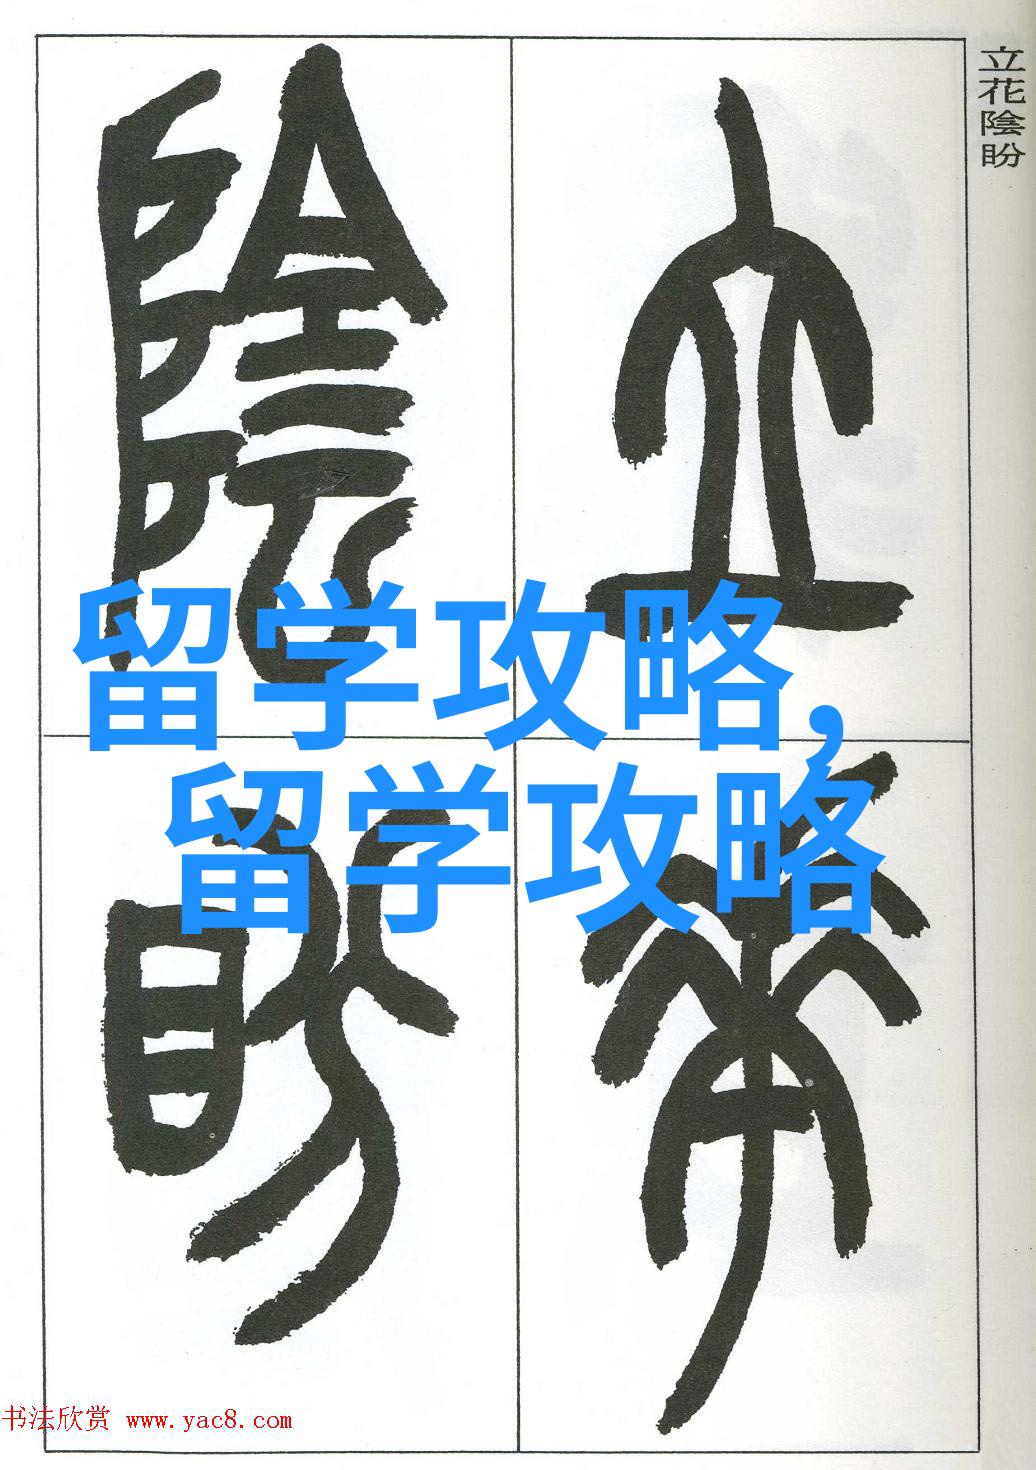 立花陰盼
立
花
陰
盼
留学攻略,
留学攻略
书法欣赏 www.yac8.com